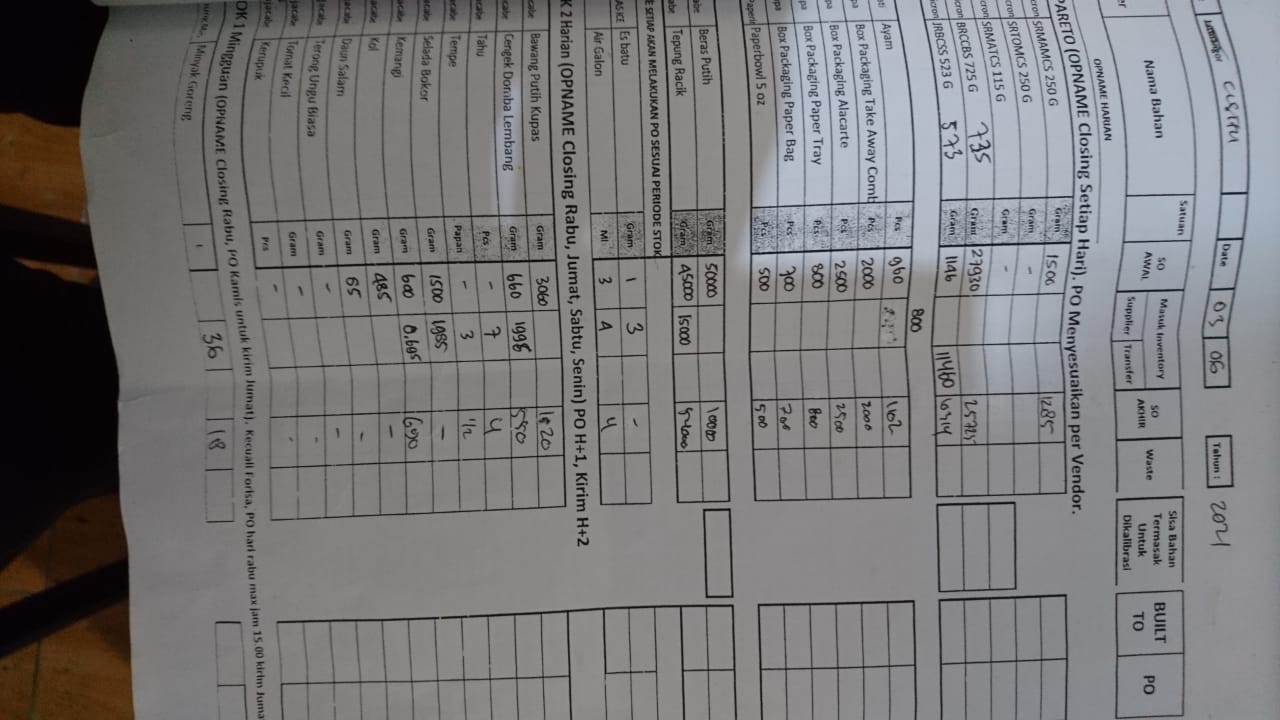 Date 03 06 Tahun : 2021
Nama Bahan Satuan SO AWAL Masuk Inventory Supplier Transfer SO AKHIR Waste Sisa Bahan Termasak Untuk Dikalibrasi BUILT TO PO
OPNAME HARIAN
PARETO (OPNAME Closing Setiap Hari), PO Menyesuaikan per Vendor.
SRMAMCS 250 G Gram 1500 1285
SRTOMCS 250 G Gram -
SRMATCS 115 G Gram -
BRCCBS 725 G 735 Gram 27930 25725
JRBCCSS 523 G 573 Gram 1146 11460 10314
800
Ayam Pcs 960 162
Box Packaging Take Away Comb Pcs 2000 2000
Box Packaging Alacarte Pcs 2500 2500
Box Packaging Paper Tray Pcs 800 800
Box Packaging Paper Bag Pcs 700 700
Paperbowl 5 oz Pcs 500 500
Beras Putih Gram 50000 10000
Tepung Racik Gram 45000 15000
E SETIAP AKAN MELAKUKAN PO SESUAI PERIODE STOK
Es batu Gram 1 3 -
Air Galon Ml 3 4 4
K 2 Harian (OPNAME Closing Rabu, Jumat, Sabtu, Senin) PO H+1, Kirim H+2
Bawang Putih Kupas Gram 3060 1820
Cengek Domba Lembang Gram 660 1998 550
Tahu Pcs - 7 4
Tempe Papan - 3 1/2
Selada Bokor Gram 1500 1985 -
Kemangi Gram 600 0,695 690
Kol Gram 485 -
Daun Salam Gram 65 -
Terong Ungu Biasa Gram - -
Tomat Kecil Gram - -
Kerupuk Pcs -
OK 1 Mingguan (OPNAME Closing Rabu, PO Kamis untuk kirim Jumat), Kecuali Forisa, PO hari rabu max jam 15.00 kirim Juma
Minyak Goreng 1 36 18